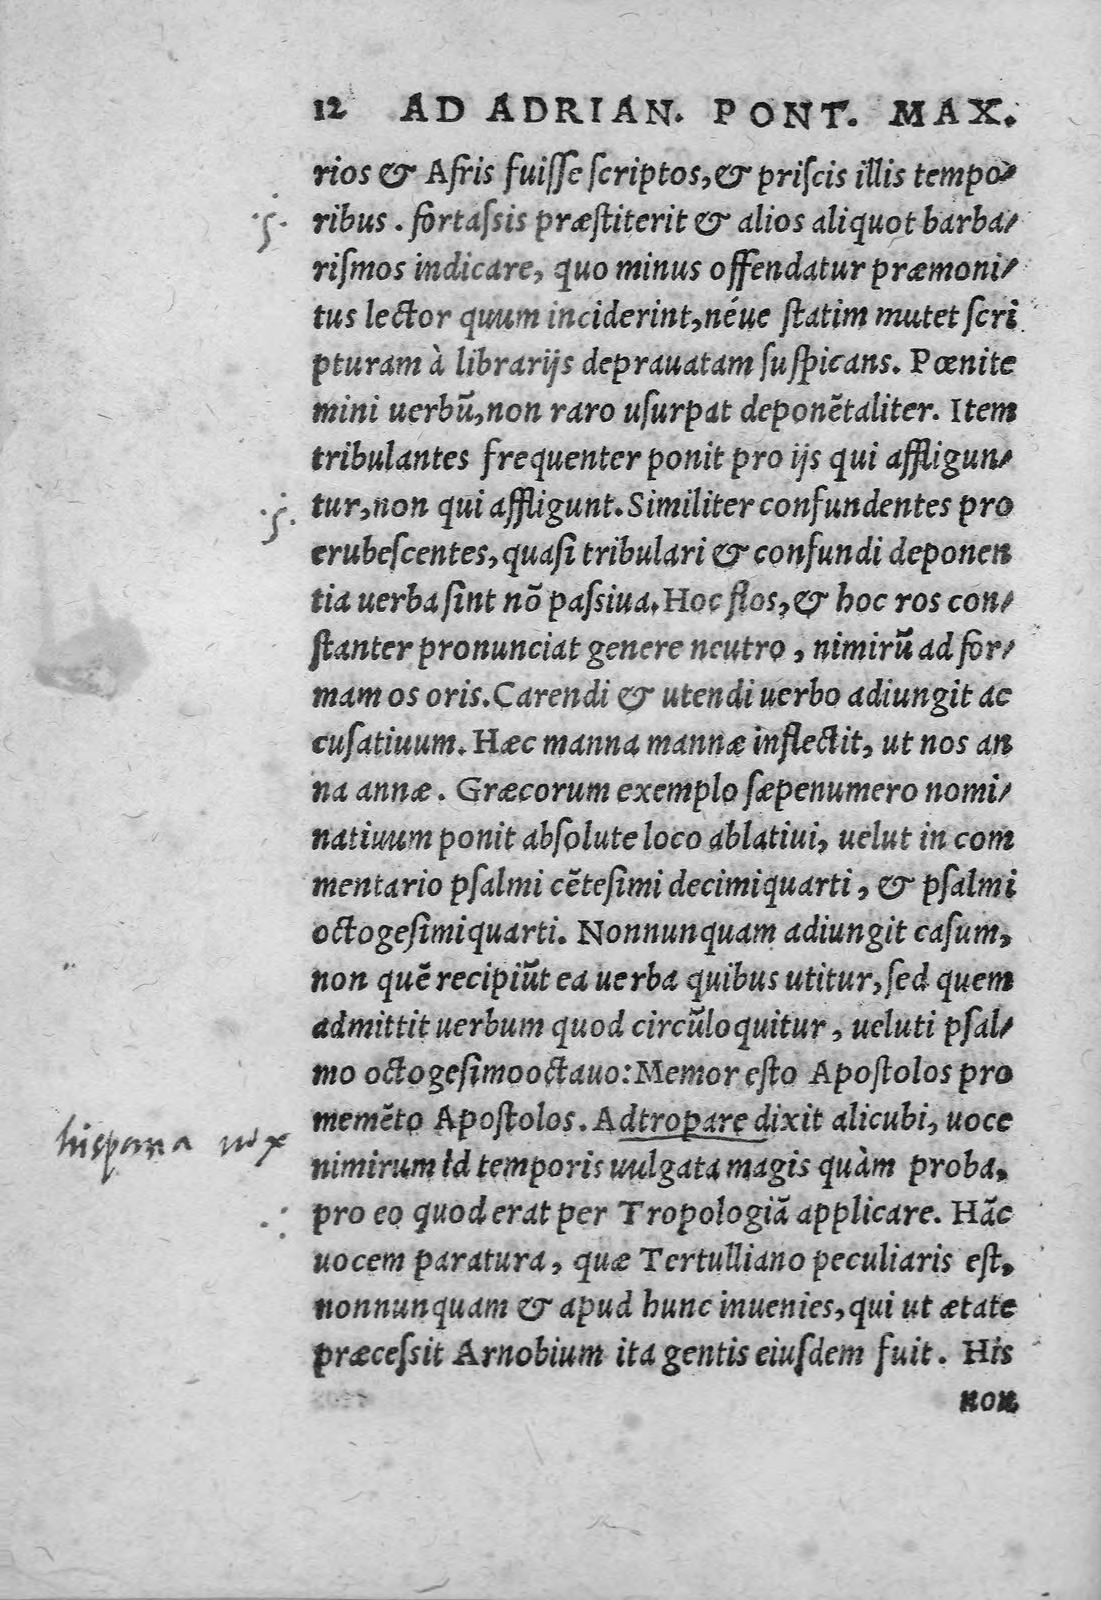 12 AD ADRIAN. PONT. MAX.
rios & Afris fuiſſe ſcriptos, & priſcis illis tempo⸗
ribus. fortaſsis præſtiterit & alios aliquot barba⸗
riſmos indicare, quo minus offendatur præmoni⸗
tus lector quum inciderint, néue ſtatim mutet ſcri
pturam à librarijs deprauatam ſuſpicans. Pœnite
mini uerbũ, non raro uſurpat deponẽtaliter. Item
tribulantes frequenter ponit pro ijs qui affligun⸗
tur, non qui affligunt. Similiter confundentes pro
erubeſcentes, quaſi tribulari & confundi deponen
tia uerba ſint nõ paſsiua. Hoc flos, & hoc ros con⸗
ſtanter pronunciat genere neutro, nimirũ ad for⸗
mam os oris. Carendi & utendi uerbo adiungit ac
cuſatiuum. Hæc manna mannæ inflectit, ut nos an
na annæ. Græcorum exemplo ſæpenumero nomi⸗
natiuum ponit abſolute loco ablatiui, uelut in com
mentario pſalmi cẽteſimi decimiquarti, & pſalmi
octogeſimiquarti. Nonnunquam adiungit caſum,
non quẽ recipiũt ea uerba quibus utitur, ſed quem
admittit uerbum quod circũloquitur, ueluti pſal⸗
mo octogeſimooctauo: Memor eſto Apoſtolos pro
memẽto Apoſtolos. Adtropare dixit alicubi, uoce
hispana vox
nimirum id temporis uulgata magis quàm proba,
pro eo quod erat per Tropologiã applicare. Hãc
uocem paratura, quæ Tertulliano peculiaris eſt,
nonnunquam & apud hunc inuenies, qui ut ætate
præceſsit Arnobium ita gentis eiuſdem fuit. His
non